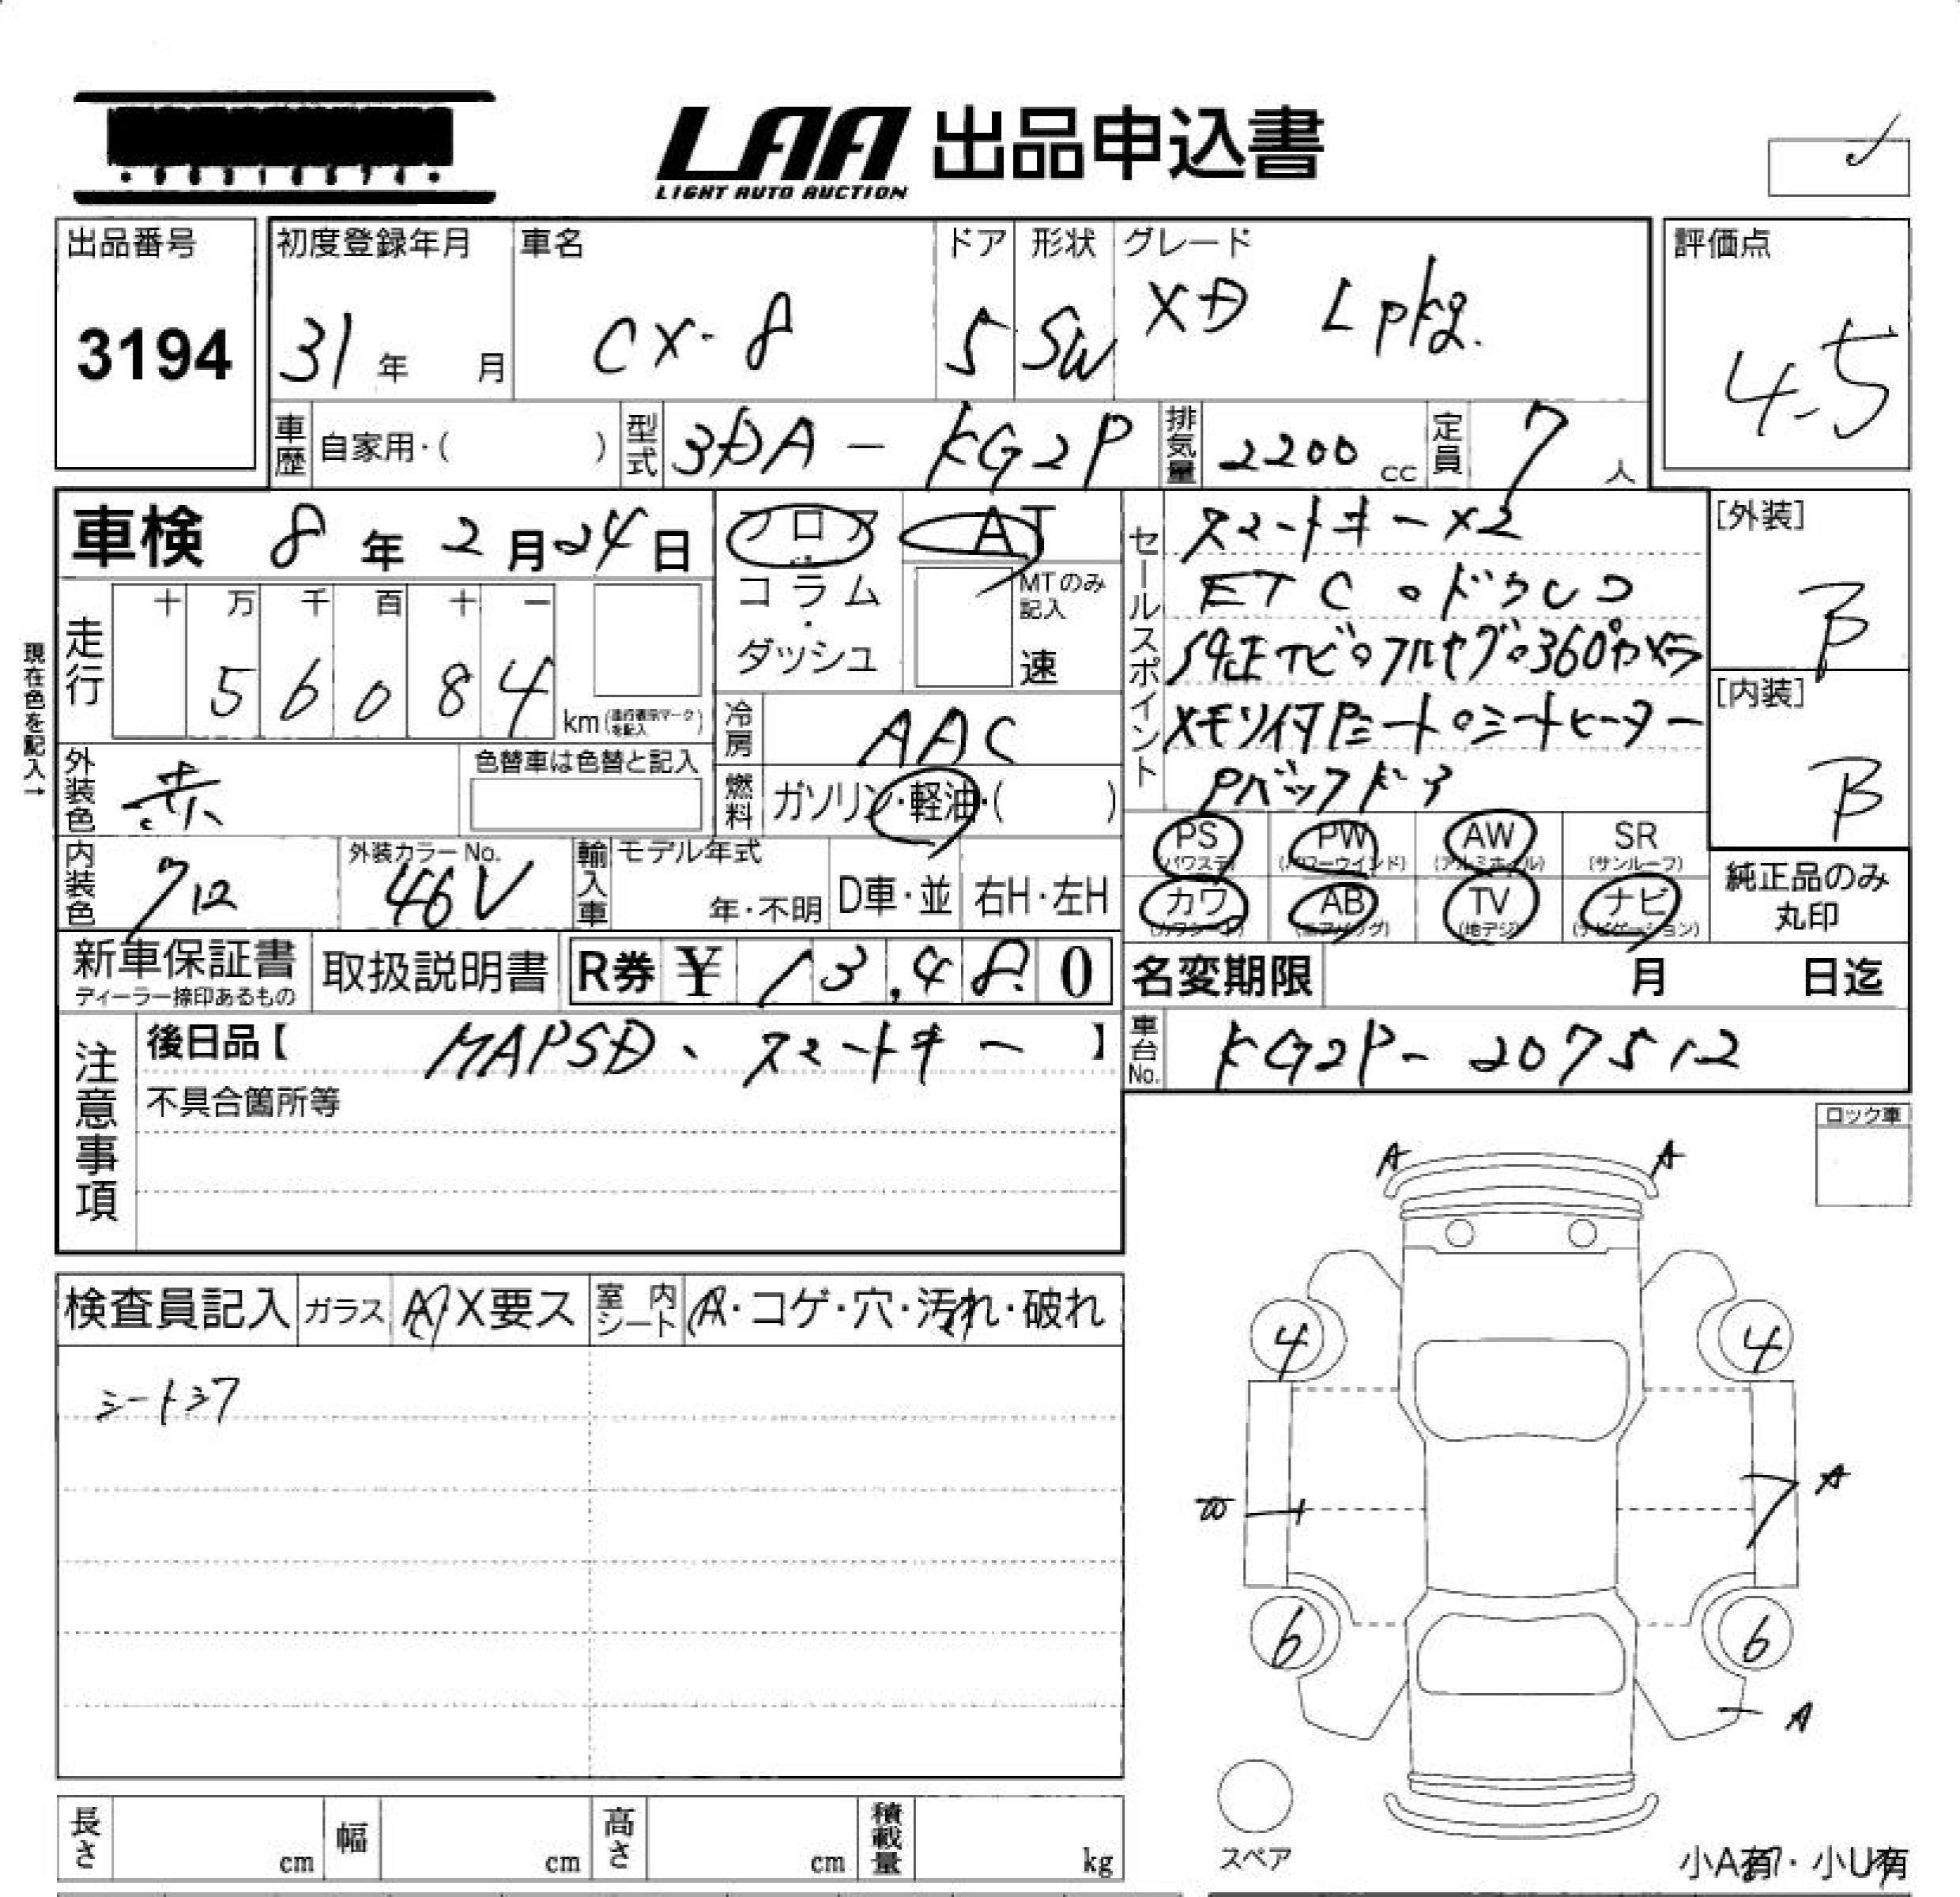 LAA 出品申込書
LIGHT AUTO AUCTION
出品番号
3194
初度登録年月
31年 月
車名
CX-8
ドア
5
形状
SW
グレード
XD Lpkg.
評価点
4.5
車歴 自家用・( )
型式 3DA-KG2P
排気量 2200 cc
定員 7 人
車検 8年2月24日
フロア AT
コラム・ダッシュ
MTのみ記入
速
走行
十 万 千 百 十 一
5 6 0 8 4
km
現在色を記入→
外装色 赤
色替車は色替と記入
冷房 AAC
燃料 ガソリン・軽油・( )
内装色
外装カラーNo. 46V
輸入車 モデル年式
年・不明 D車・並 右H・左H
新車保証書
ディーラー捺印あるもの
取扱説明書
R券 ¥ 13,480
セールスポイント
スマートキー×2
ETC。ドラレコ
純正ナビ。フルセグ。360°カメラ
メモリ付Pシート。シートヒーター
Pバックドア
[外装]
B
[内装]
B
PS (パワステ) PW (パワーウインド) AW (アルミホイル) SR (サンルーフ)
カワ (カワシート) AB (エアバッグ) TV (地デジ) ナビ (ナビゲーション)
純正品のみ
丸印
名変期限 月 日迄
車台No. KG2P-207512
注意事項
後日品【 MAPSD、スマートキー 】
不具合箇所等
ロック車
検査員記入 ガラス A X要ス
室内シート A・コゲ・穴・汚れ・破れ
A A
4 4
A
6 6
A
スペア
小A有・小U有
長さ cm 幅 cm 高さ cm 積載量 kg